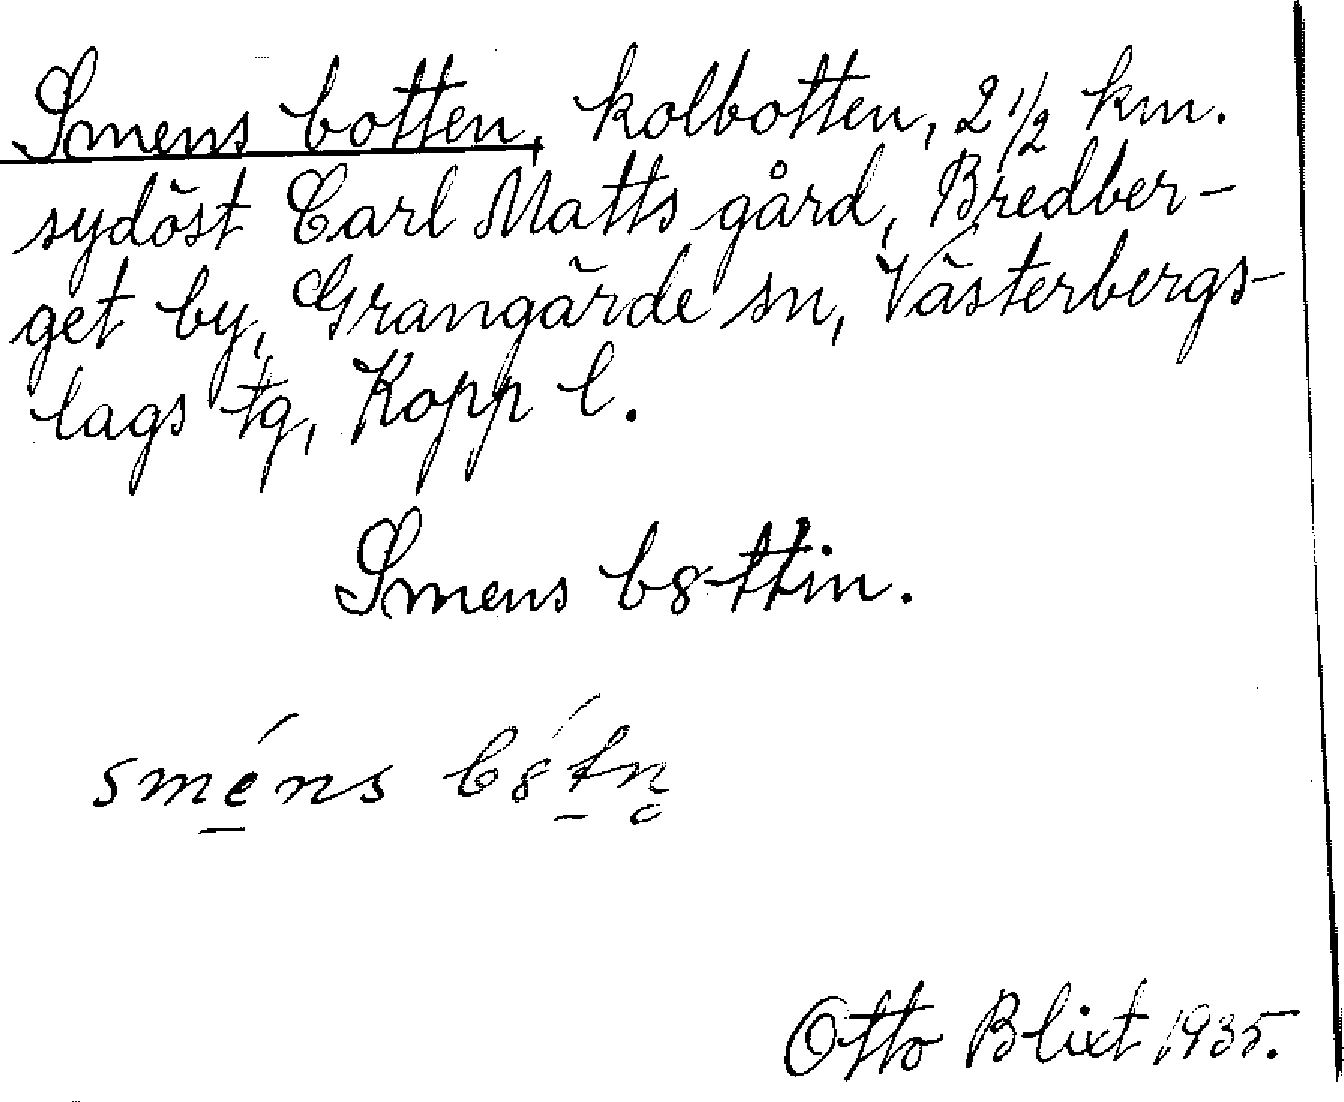 Smens botten, kolbotten, 2 1/2 km.
sydöst Carl Matts gård, Bredber-
get by, Grangärde sn, Västerbergs-
lags tg, Kopp l.
Smens b8ttin.
sméns b8́tn̥
Otto Blixt 1935.